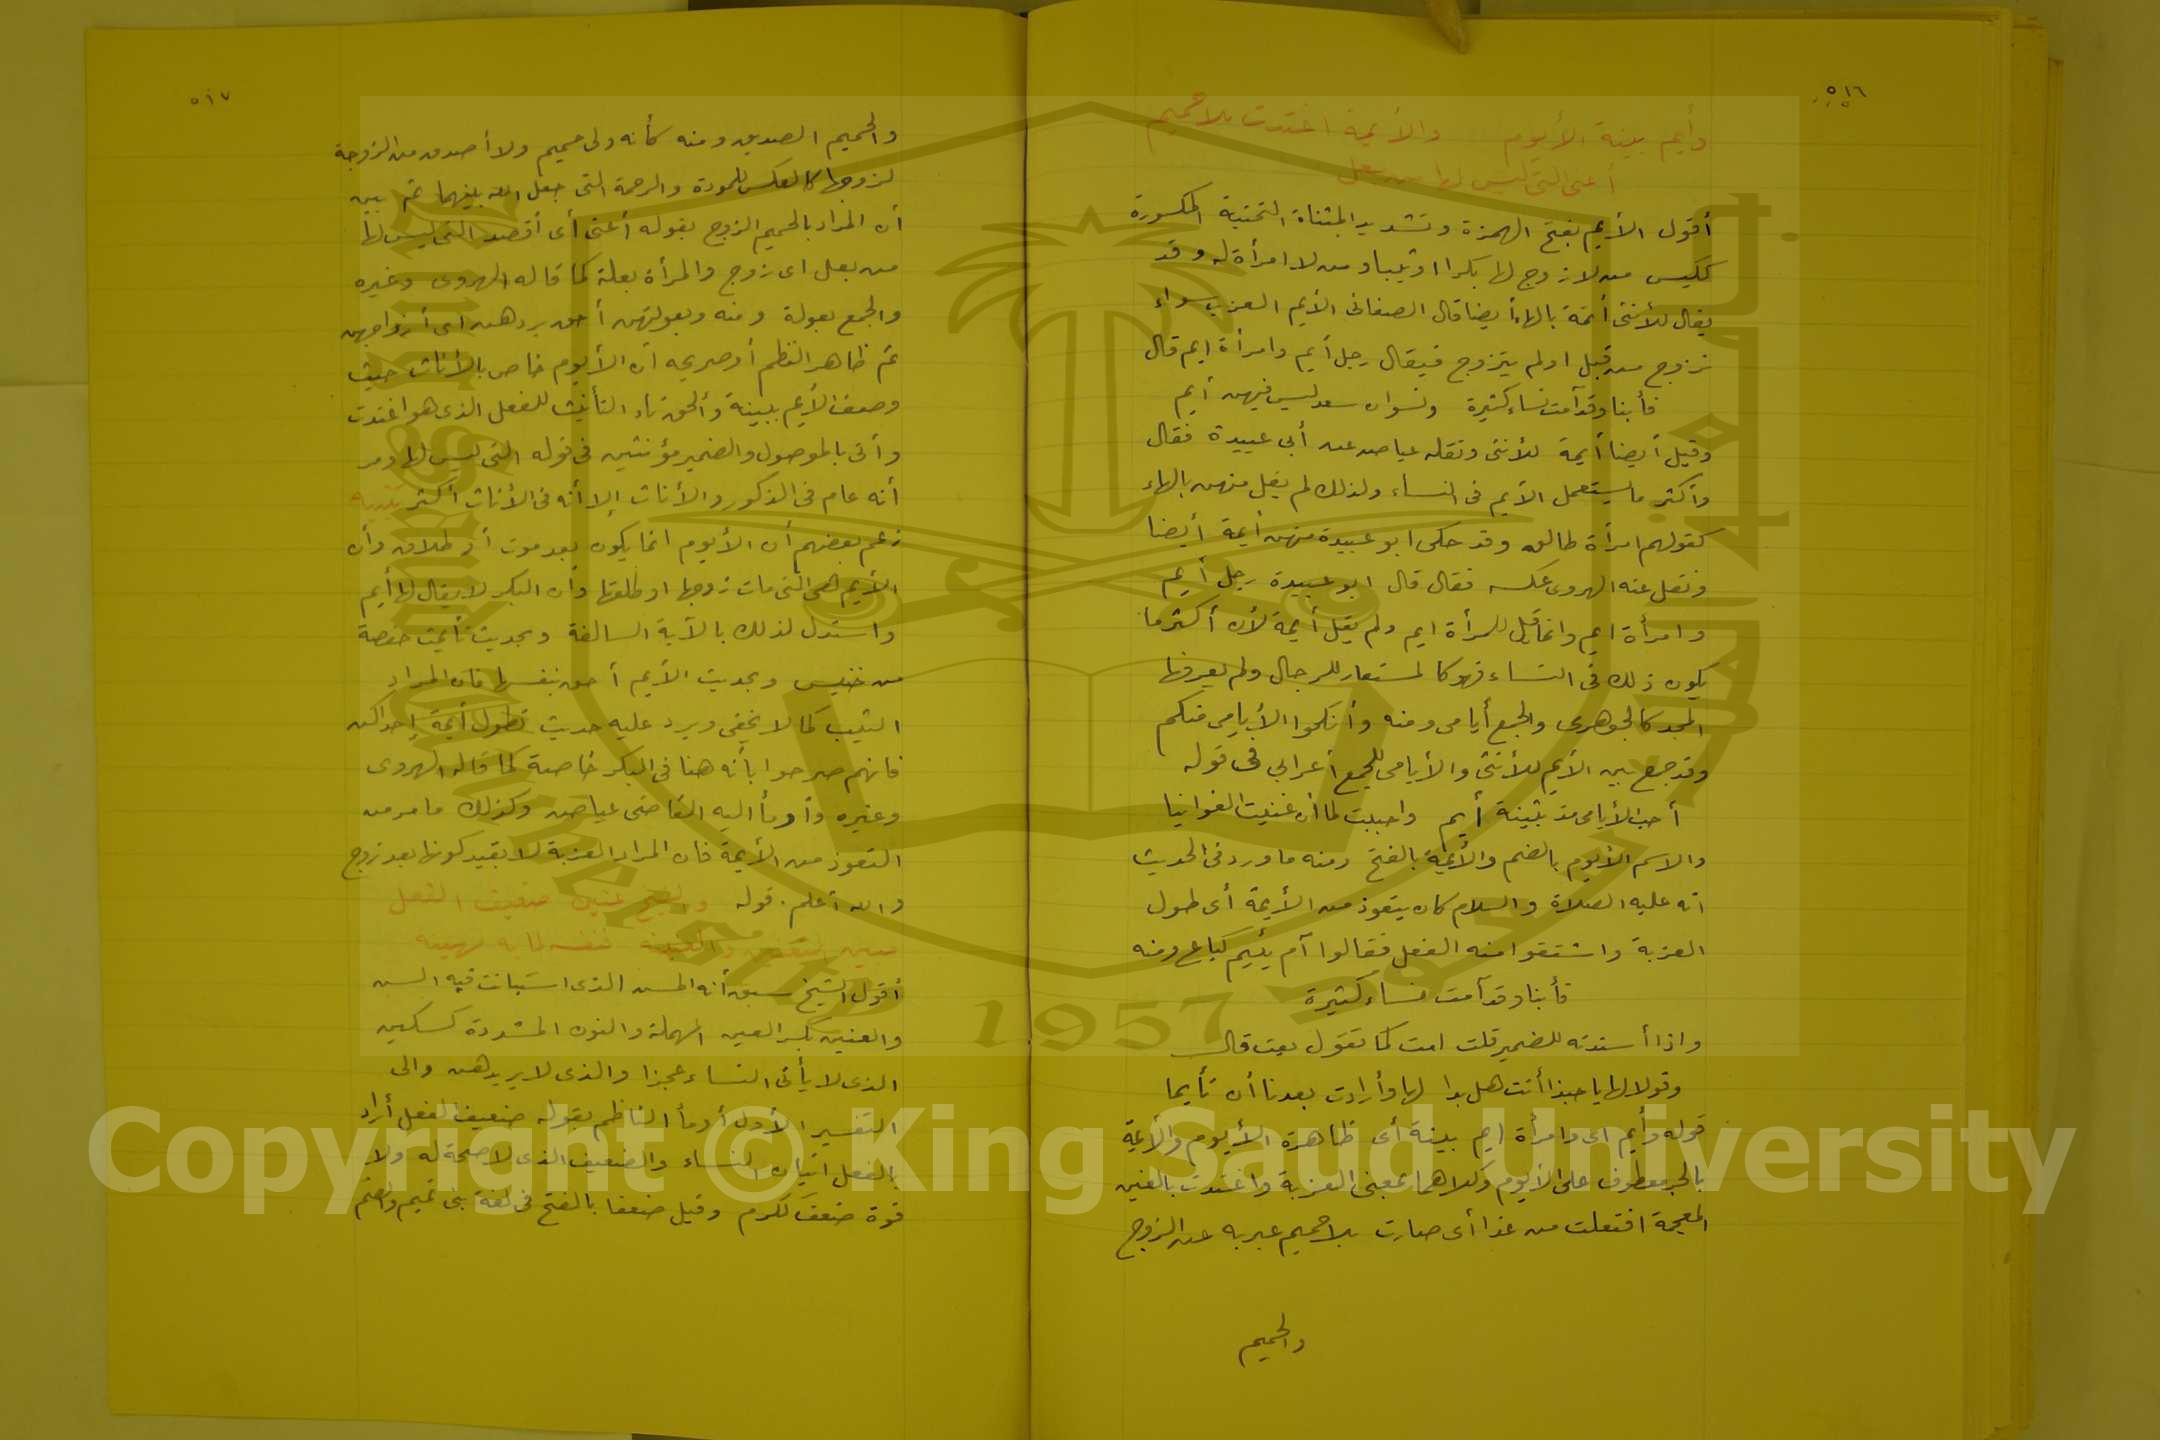 ٥١٦
وأيم بينة الأيوم والأيمة اغتدت بلا حميم
أعني التي ليس لها من بعل
أقول الأيم بفتح الهمزة وتشديد المثناة التحتية المكسورة
ككيس من لا زوج لها بكرا او ثيبا ومن لا امرأة له وقد
يقال للأنثى أيمة بالهاء أيضا قال الصغاني الأيم العزب سواء
تزوج من قبل او لم يتزوج فيقال رجل أيم وامرأة ايم قال
فأبنا وقد آمت نساء كثيرة ونسوان سعد ليس فيهن أيم
وقيل أيضا أيمة للأنثى ونقله عياض عن أبي عبيدة فقال
وأكثر ما يستعمل الأيم في النساء ولذلك لم يقل منهن بالهاء
كقولهم امرأة طالق وقد حكى ابو عبيدة منهن أيمة أيضا
ونقل عنه الهروي عكسه فقال قال ابو عبيدة رجل أيم
وامرأة ايم وانما قيل للمرأة ايم ولم يقل أيمة لأن أكثر ما
يكون ذلك في النساء فهو كالمستعار للرجال ولم يعرفها
المجد كالجوهري والجمع أيامى ومنه وأنكحوا الأيامى منكم
وقد جمع بين الأيم للأنثى والأيامى للجمع أعرابي في قوله
أحب الأيامى مذ بثينة أيم واحببت لما أن غنيت الغوانيا
والاسم الأيوم بالضم والأيمة بالفتح ومنه ما ورد في الحديث
انه عليه الصلاة والسلام كان يتعوذ من الأيمة أى طول
العزبة واشتقوا منه الفعل فقالوا آم يئيم كباع ومنه
فأبنا وقد آمت نساء كثيرة
واذا أسندته للضمير قلت امت كما تقول بعت قال
وقولا لها يا حبذا أنت هل بدا لها وأرادت بعدنا أن تأيما
قوله وأيم اى وامرأة ايم بينة أى ظاهرة الأيوم والأيمة
بالجر معطوف على الأيوم وكلاهما بمعنى العزبة واغتدت بالغين
المعجمة افتعلت من غدا أى صارت بلا حميم عبر به عن الزوج
والحميم
٥١٧
والحميم الصديق ومنه كأنه ولي حميم ولا أصدق من الزوجة
لزوجها كالعكس للمودة والرحمة التي جعل الله بينهما ثم بين
أن المراد بالحميم الزوج بقوله أعني أى أقصد التي ليس لها
من بعل اى زوج والمرأة بعلة كما قاله الهروى وغيره
والجمع بعولة ومنه وبعولتهن أحق بردهن اى أزواجهن
ثم ظاهر النظم أو صريحه أن الأيوم خاص بالأناث حيث
وصف الأيم ببينة وألحق تاء التأنيث للفعل الذى هو اغتدت
وأتى بالموصول والضمير مؤنثين في قوله التي ليس لها ومر
أنه عام في الذكور والأناث إلا أنه في الأناث أكثر تنبيه
زعم بعضهم أن الأيوم انما يكون بعد موت أو طلاق وأن
الأيم هي التي مات زوجها او طلقها وأن البكر لا يقال لها أيم
واستدل لذلك بالآية السالفة وبحديث تأيمت حفصة
من خنيس وبحديث الأيم أحق بنفسها فان المراد
الثيب كما لا يخفى ويرد عليه حديث تطول أيمة إحداكن
فانهم صرحوا بأنه هنا في البكر خاصة كما قاله الهروى
وغيره وأومأ اليه القاضي عياض وكذلك ما مر من
التعوذ من الأيمة فان المراد العزبة لا بقيد كونها بعد زوج
والله أعلم. قوله والشيخ عنين ضعيف الفعل
أقول الشيخ سبق أنه المسن الذى استبانت فيه السن
والعنين بكسر العين المهملة والنون المشددة كسكين
الذى لا يأتى النساء عجزا والذى لا يريدهن والى
التفسير الأول أومأ الناظم بقوله ضعيف الفعل أراد
بالفعل اتيان النساء والضعيف الذى لا صحة له ولا
قوة ضعف ككرم وقيل ضعفا بالفتح في لغة بنى تميم وبضم
1957
Copyright © King Saud University